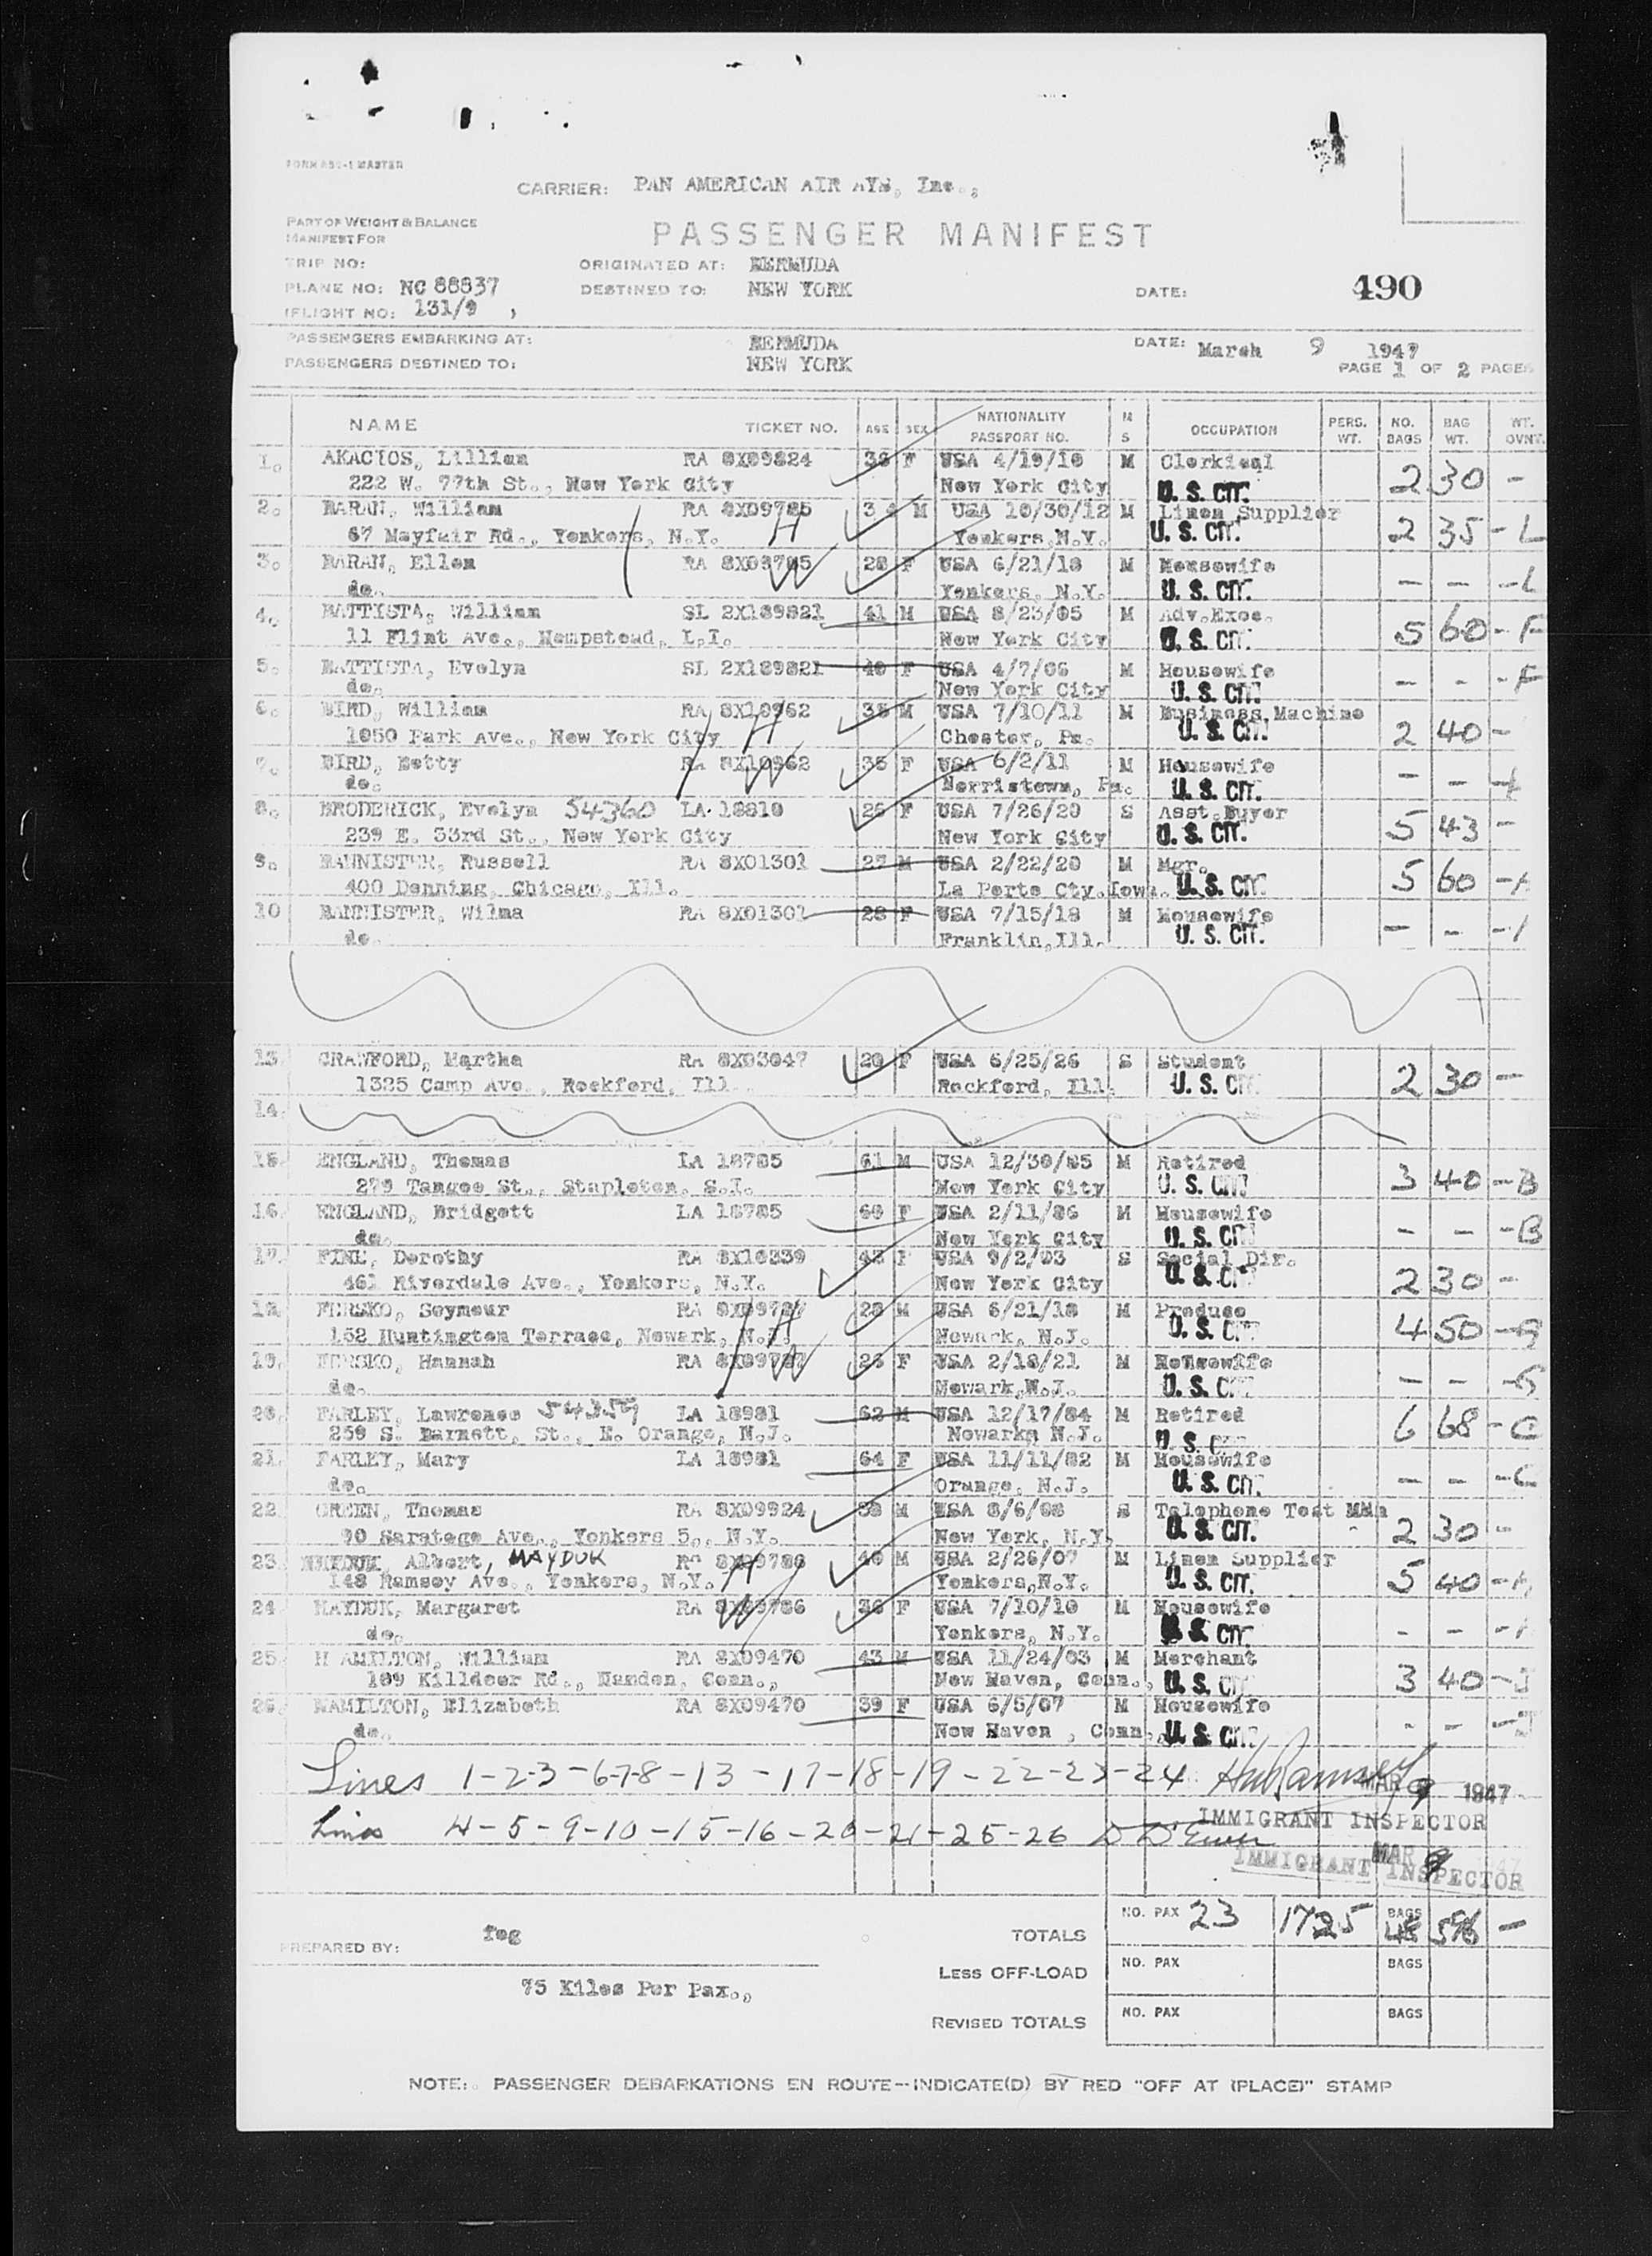 FORM 850-1 MASTER
CARRIER: PAN AMERICAN AIR AYS, Inc.,
PART OF WEIGHT & BALANCE
MANIFEST FOR
PASSENGER MANIFEST
TRIP NO: ORIGINATED AT: BERMUDA
PLANE NO: NC 88837 DESTINED TO: NEW YORK DATE: 490
(FLIGHT NO: 131/9 )
PASSENGERS EMBARKING AT: BERMUDA DATE: March 9 1947
PASSENGERS DESTINED TO: NEW YORK PAGE 1 OF 2 PAGES
NAME TICKET NO. AGE SEX NATIONALITY PASSPORT NO. M S OCCUPATION PERS. WT. NO. BAGS BAG WT. WT. OVNT.
1. AKACIOS, Lillian RA 8X09824 36 F USA 4/19/10 M Clerkical 2 30 -
222 W. 77th St., New York City New York City U. S. CIT.
2. BARAN, William RA 8X09785 34 M USA 10/30/12 M Linen Supplier
67 Mayfair Rd., Yonkers, N.Y. H Yonkers,N.Y. U. S. CIT. 2 35 - L
3. BARAN, Ellen RA 8X09785 28 F USA 6/21/18 M Housewife
do. W Yonkers, N.Y. U. S. CIT. - - - L
4. BATTISTA, William SL 2X189821 41 M USA 8/23/05 M Adv.Exec.
11 Flint Ave., Hempstead, L.I. New York City U. S. CIT. 5 60 - F
5. BATTISTA, Evelyn SL 2X189821 40 F USA 4/7/06 M Housewife
do. New York City U. S. CIT. - - - F
6. BIRD, William RA 8X10962 35 M USA 7/10/11 M Business Machine
1050 Park Ave., New York City H Chester, Pa. U. S. CIT. 2 40 -
7. BIRD, Betty RA 8X10962 35 F USA 6/2/11 M Housewife
do. W Norristown, Pa. U. S. CIT. - - -
8. BRODERICK, Evelyn 54360 LA 18810 26 F USA 7/26/20 S Asst.Buyer
239 E. 53rd St., New York City New York City U. S. CIT. 5 43 -
9. BANNISTER, Russell RA 8X01301 27 M USA 2/22/20 M Mgr.
400 Denning, Chicago, Ill. La Porte Cty.Iowa. U. S. CIT. 5 60 -
10 BANNISTER, Wilma RA 8X01301 28 F USA 7/15/18 M Housewife
do. Franklin,Ill. U. S. CIT. - - -
13. CRAWFORD, Martha RA 8X03047 20 F USA 6/25/26 S Student
1325 Camp Ave., Rockford, Ill. Rockford, Ill. U. S. CIT. 2 30 -
14.
15. ENGLAND, Thomas LA 18785 61 M USA 12/30/85 M Retired
279 Tangee St., Stapleton, S.I. New York City U. S. CIT. 3 40 - B
16. ENGLAND, Bridgett LA 18785 60 F USA 2/11/86 M Housewife
do. New York City U. S. CIT. - - - B
17. FINE, Dorothy RA 8X10339 43 F USA 9/2/03 S Social Dir.
461 Riverdale Ave., Yonkers, N.Y. New York City U. S. CIT. 2 30 -
18. FERSKO, Seymour RA 8X09787 28 M USA 6/21/18 M Produce
152 Huntington Terrace, Newark, N.J. H Newark, N.J. U. S. CIT. 4 50 - G
19. FERSKO, Hannah RA 8X09787 26 F USA 2/18/21 M Housewife
do. W Newark,N.J. U. S. CIT. - - - G
20. FARLEY, Lawrence 54359 LA 18981 62 M USA 12/17/84 M Retired
259 S. Barnett, St., E. Orange, N.J. Newark, N.J. U. S. CIT. 6 68 - C
21. FARLEY, Mary LA 18981 64 F USA 11/11/82 M Housewife
do. Orange, N.J. U. S. CIT. - - - C
22. GREEN, Thomas RA 8X09924 38 M USA 8/6/08 S Telephone Test Man
90 Saratoga Ave., Yonkers 5,, N.Y. New York, N.Y. U. S. CIT. 2 30 -
23. HAYDUK, Albert, HAYDUK RA 8X09786 40 M USA 2/26/07 M Linen Supplier
148 Ramsey Ave., Yonkers, N.Y. H Yonkers,N.Y. U. S. CIT. 5 40 -
24. HAYDUK, Margaret RA 8X09786 36 F USA 7/10/10 M Housewife
do. W Yonkers, N.Y. U. S. CIT. - - -
25. H AMILTON, William RA 8X09470 43 M USA 11/24/03 M Merchant
189 Killdeer Rd., Hamden, Conn., New Haven, Conn., U. S. CIT. 3 40 - J
26. HAMILTON, Elizabeth RA 8X09470 39 F USA 6/5/07 M Housewife
do. New Haven , Conn. U. S. CIT. - - - J
Lines 1-2-3-6-7-8-13-17-18-19-22-23-24 MAR 9 1947
IMMIGRANT INSPECTOR
Lines 4-5-9-10-15-16-20-21-25-26
MAR 9 1947
IMMIGRANT INSPECTOR
PREPARED BY: feg TOTALS NO. PAX 23 1725 BAGS 48 596 -
75 Kilos Per Pax., LESS OFF-LOAD NO. PAX BAGS
REVISED TOTALS NO. PAX BAGS
NOTE: PASSENGER DEBARKATIONS EN ROUTE--INDICATE(D) BY RED "OFF AT (PLACE)" STAMP